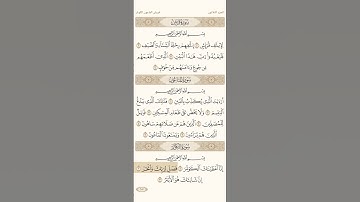 سورة قريش
بسم الله الرحمن الرحيم
لإيلاف قريش ١ إيلافهم رحلة الشتاء والصيف ٢
فليعبدوا رب هذا البيت ٣ الذي أطعمهم
من جوع وءامنهم من خوف ٤
سورة الماعون
بسم الله الرحمن الرحيم
أرءيت الذي يكذب بالدين ١ فذلك الذي يدع
اليتيم ٢ ولا يحض على طعام المسكين ٣ فويل
للمصلين ٤ الذين هم عن صلاتهم ساهون ٥
الذين هم يراءون ٦ ويمنعون الماعون ٧
سورة الكوثر
بسم الله الرحمن الرحيم
إنا أعطيناك الكوثر ١ فصل لربك وانحر ٢
إن شانئك هو الأبتر ٣